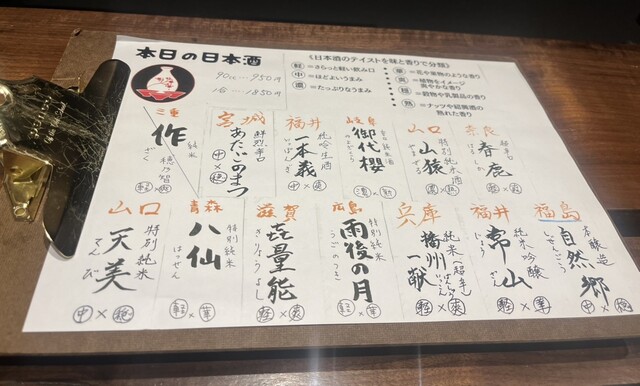 本日の日本酒
90cc…950円
1合…1850円
《日本酒のテイストを味と香りで分類》
軽=さらっと軽い飲み口
中=ほどよいうまみ
濃=たっぷりなうまみ
華=花や果物のような香り
爽=植物をイメージ
爽やかな香り
穏=穀物や乳製品の香り
熟=ナッツや紹興酒の
熟れた香り
三重
作
ざく
純米
穂乃智
宮城
あたごのまつ
鮮烈辛口
中×穏
福井
一本義
純吟生酒
中×爽
岐阜
御代櫻
辛口純米酒
濃×熟
山口
山猿
特別純米酒
濃×穏
奈良
春鹿
超辛口
山口
天美
てんび
特別純米
中×穏
青森
八仙
はっせん
特別純米
軽×華
滋賀
㐂量能
きりょうよし
軽×爽
広島
雨後の月
うごのつき
特別純米
軽×華
兵庫
播州一献
ばんしゅういっこん
純米(超辛)
軽×爽
福井
常山
じょうざん
純米吟醸
軽×華
福島
自然郷
しぜんごう
本醸造
中×穏